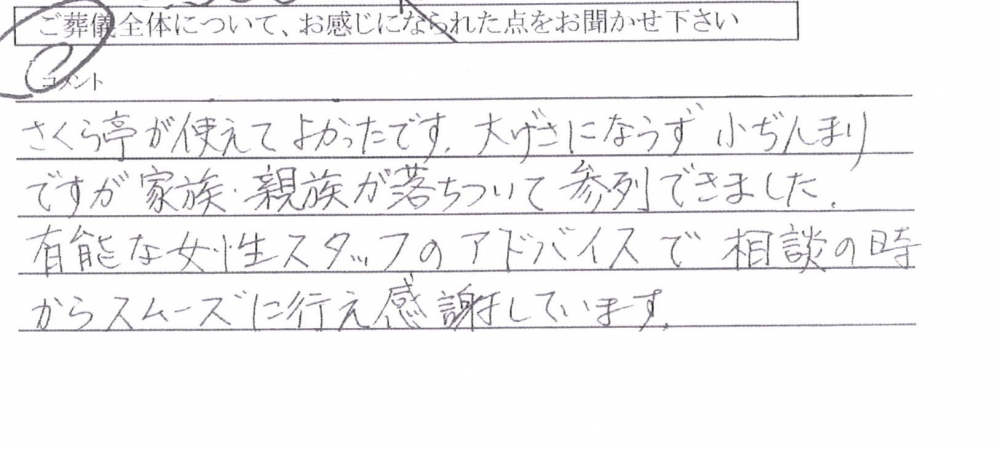 ご葬儀全体について、お感じになられた点をお聞かせ下さい
コメント
さくら亭が使えてよかったです。大げさにならず 小ぢんまり
ですが 家族・親族が落ちついて 参列できました。
有能な女性スタッフのアドバイスで 相談の時
からスムーズに行え感謝しています。